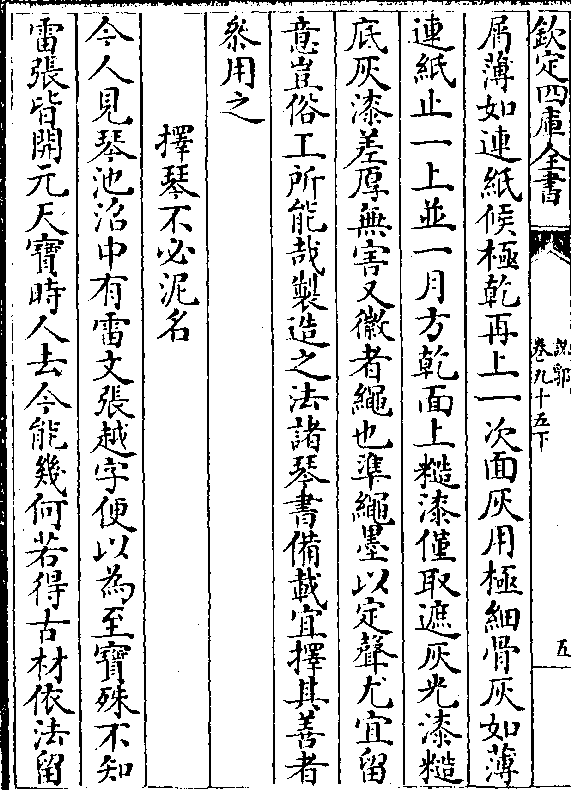 欽定四庫全書
說郛
卷九十五下
五
屑薄如連紙候極乾再上一次面灰用極細骨灰如薄
連紙止一上並一月方乾面上糙漆僅取遮灰光漆糙
底灰漆差厚無害又徽者繩也準繩墨以定聲尤宜留
意豈俗工所能哉製造之法諸琴書備載宜擇其善者
叅用之
擇琴不必泥名
今人見琴池沿中有雷文張越字便以為至寶殊不知
雷張皆開元天寶時人去今能幾何若得古材依法留